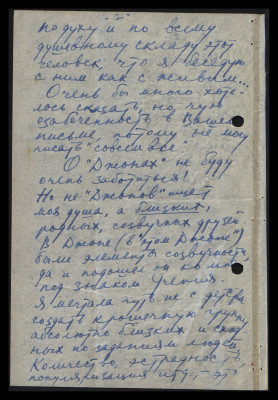 - 2 -
по духу и по всему
душевному складу этот
человек, что я беседую
с ним как с живым...
Очень бы много хоте-
лось сказать, но, чую
озабоченность в Вашем
письме, потому не могу
писать "совсем все".
О "Джонах" не буду
очень заботиться!
Но не "Джонов" ищет
моя душа, а близких,
родных, созвучных друзей.
В Джоне (в "том Джоне")
были элементы созвучности,
да и подошел он ко мне
под знаком Учения.
Я мечтала чуть не с детства
создать крошечную группу
абсолютно близких и
ных по заданиям людей.
Количество, эстрадность,
популяризация и т.д., - это